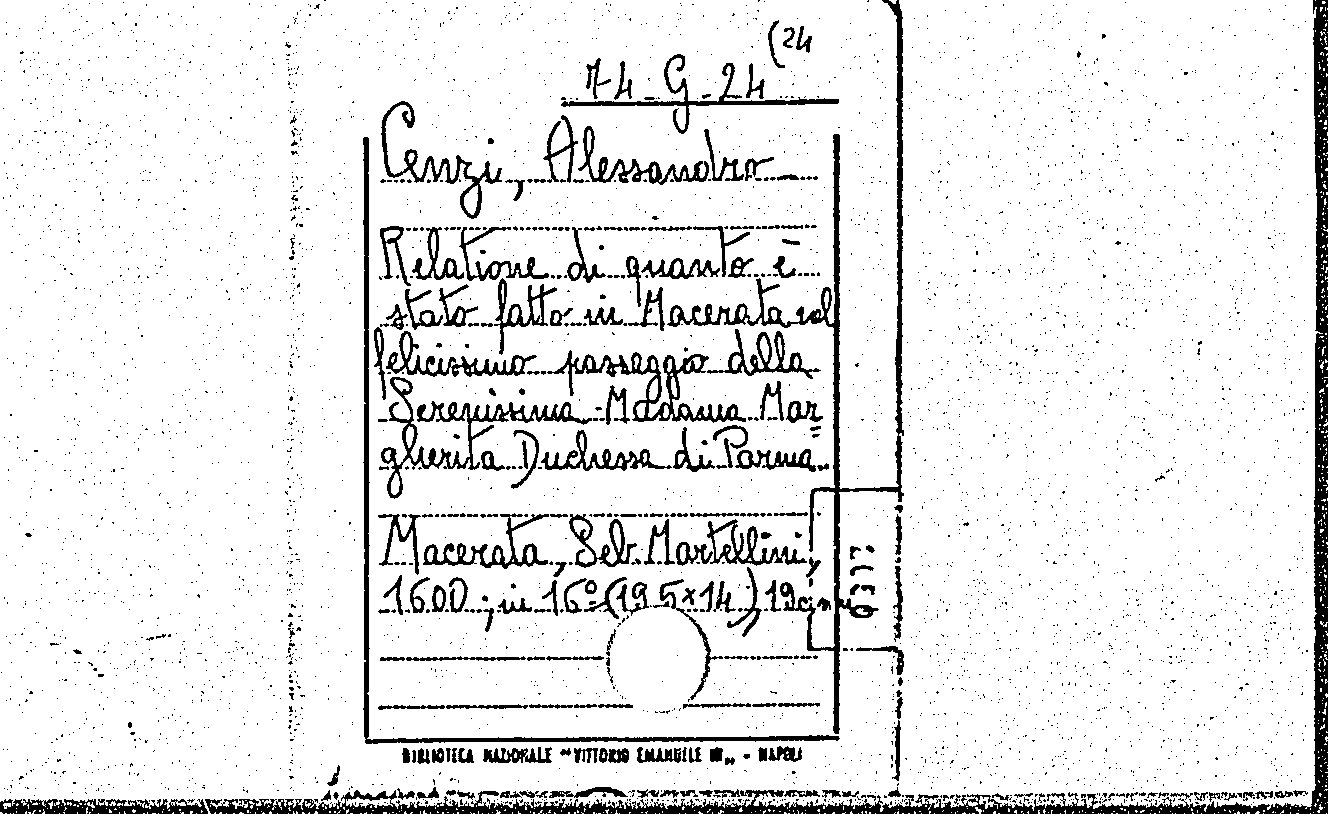 (24
74-G-24
Cenzi, Alessandro
Relatione di quanto è
stato fatto in Macerata nel
felicissimo passaggio della
Serenissima Madama Mar
gherita Duchessa di Parma..
Macerata, Seb. Martellini,
1600; in 16º (19,5x14), 19
BIBLIOTECA NAZIONALE "VITTORIO EMANUELE III„ - NAPOLI